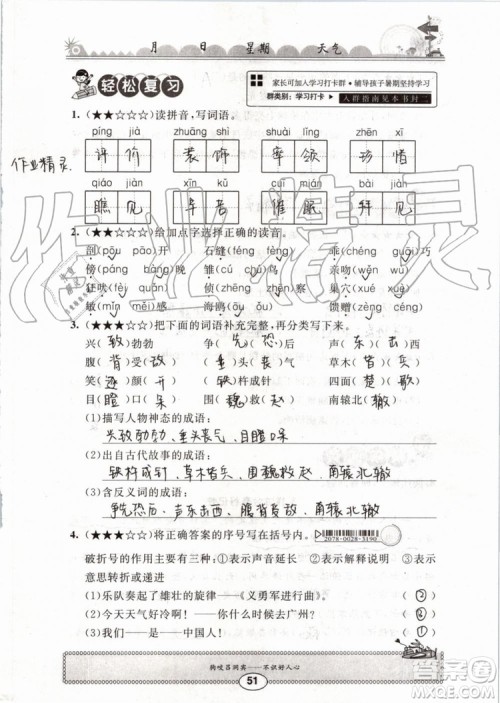 月 日 星期 天气
轻松复习
家长可加入学习打卡群·辅导孩子暑期坚持学习
群类别：学习打卡 入群指南见本书封二
1. (★★☆☆☆)读拼音，写词语。
píng jià zhuāng shì shuài lǐng zhēn xī
作业精灵 评价 装饰 率领 珍惜
qiáo jiàn xīn kǔ cuī mián bài jiàn
瞧见 辛苦 催眠 拜见
2. (★★☆☆☆)给加点字选择正确的读音。
剖(pōu pāo)开 石缝(féng fèng) 乖(chéng guāi)巧
傍(páng bàng)晚 雏(chú zhú)鸟 亲吻(wěn wèn)
狂吠(quǎn fèi) 掀(xiān xiāng)起 巢穴(xué xuè)
敏(mǐn měi)感 海鸥(ōu qū) 馈赠(zèng zēng)
3. (★★★☆☆)把下面的词语补充完整，再分类写下来。
兴(致)勃勃 争(先)恐后 声(东)击西
腹(背)受(敌) 垂(头)丧气 草木(皆)兵
笑(逐)颜(开) (铁)杵成针 四面(楚)歌
目(瞪)口(呆) 围(魏)救(赵) 南辕北(辙)
(1)描写人物神态的成语：
兴致勃勃、垂头丧气、目瞪口呆
(2)出自古代故事的成语：
铁杵成针、草木皆兵、围魏救赵、南辕北辙
(3)含反义词的成语：
争先恐后、声东击西、腹背受敌、南辕北辙
4. (★★★☆☆)将正确答案的序号写在括号内。
2078-0028-3190
破折号的作用主要有三种：①表示声音延长 ②表示解释说明 ③表示
意思转折或递进
(1)乐队奏起了雄壮的旋律——《义勇军进行曲》。 (②)
(2)今天天气好冷啊！——你什么时候去广州？ (③)
(3)我们——是——中国人！ (①)
狗咬吕洞宾——不识好人心
51